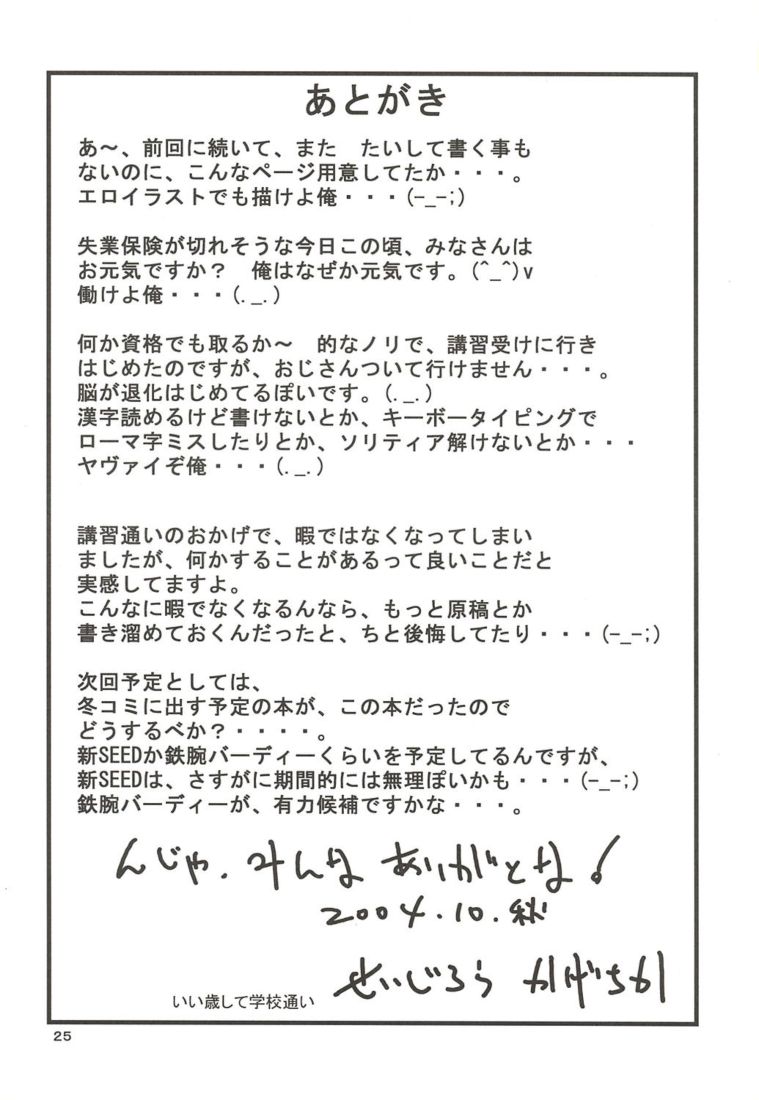 あとがき
あ～、前回に続いて、また　たいして書く事も
ないのに、こんなページ用意してたか・・・。
エロイラストでも描けよ俺・・・(-_-;)
失業保険が切れそうな今日この頃、みなさんは
お元気ですか？　俺はなぜか元気です。(^_^)v
働けよ俺・・・(._.)
何か資格でも取るか～　的なノリで、講習受けに行き
はじめたのですが、おじさんついて行けません・・・。
脳が退化はじめてるぽいです。(._.)
漢字読めるけど書けないとか、キーボータイピングで
ローマ字ミスしたりとか、ソリティア解けないとか・・・
ヤヴァイぞ俺・・・(._.)
講習通いのおかげで、暇ではなくなってしまい
ましたが、何かすることがあるって良いことだと
実感してますよ。
こんなに暇でなくなるんなら、もっと原稿とか
書き溜めておくんだったと、ちと後悔してたり・・・(-_-;)
次回予定としては、
冬コミに出す予定の本が、この本だったので
どうするべか？・・・・。
新SEEDか鉄腕バーディーくらいを予定してるんですが、
新SEEDは、さすがに期間的には無理ぽいかも・・・(-_-;)
鉄腕バーディーが、有力候補ですかな・・・。
んじゃ.みんな ありがとな!
2004.10.秋
いい歳して学校通い せいじろう かげちか
25